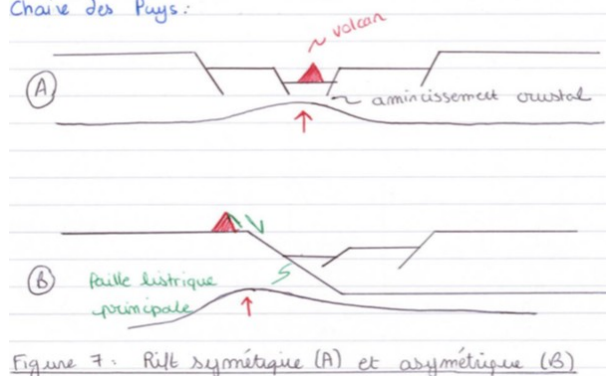 Chaîne des Puys:
~ volcan
A
~ amincissement crustal
B
faille listrique
principale
Figure 7: Rift symétrique (A) et asymétrique (B)